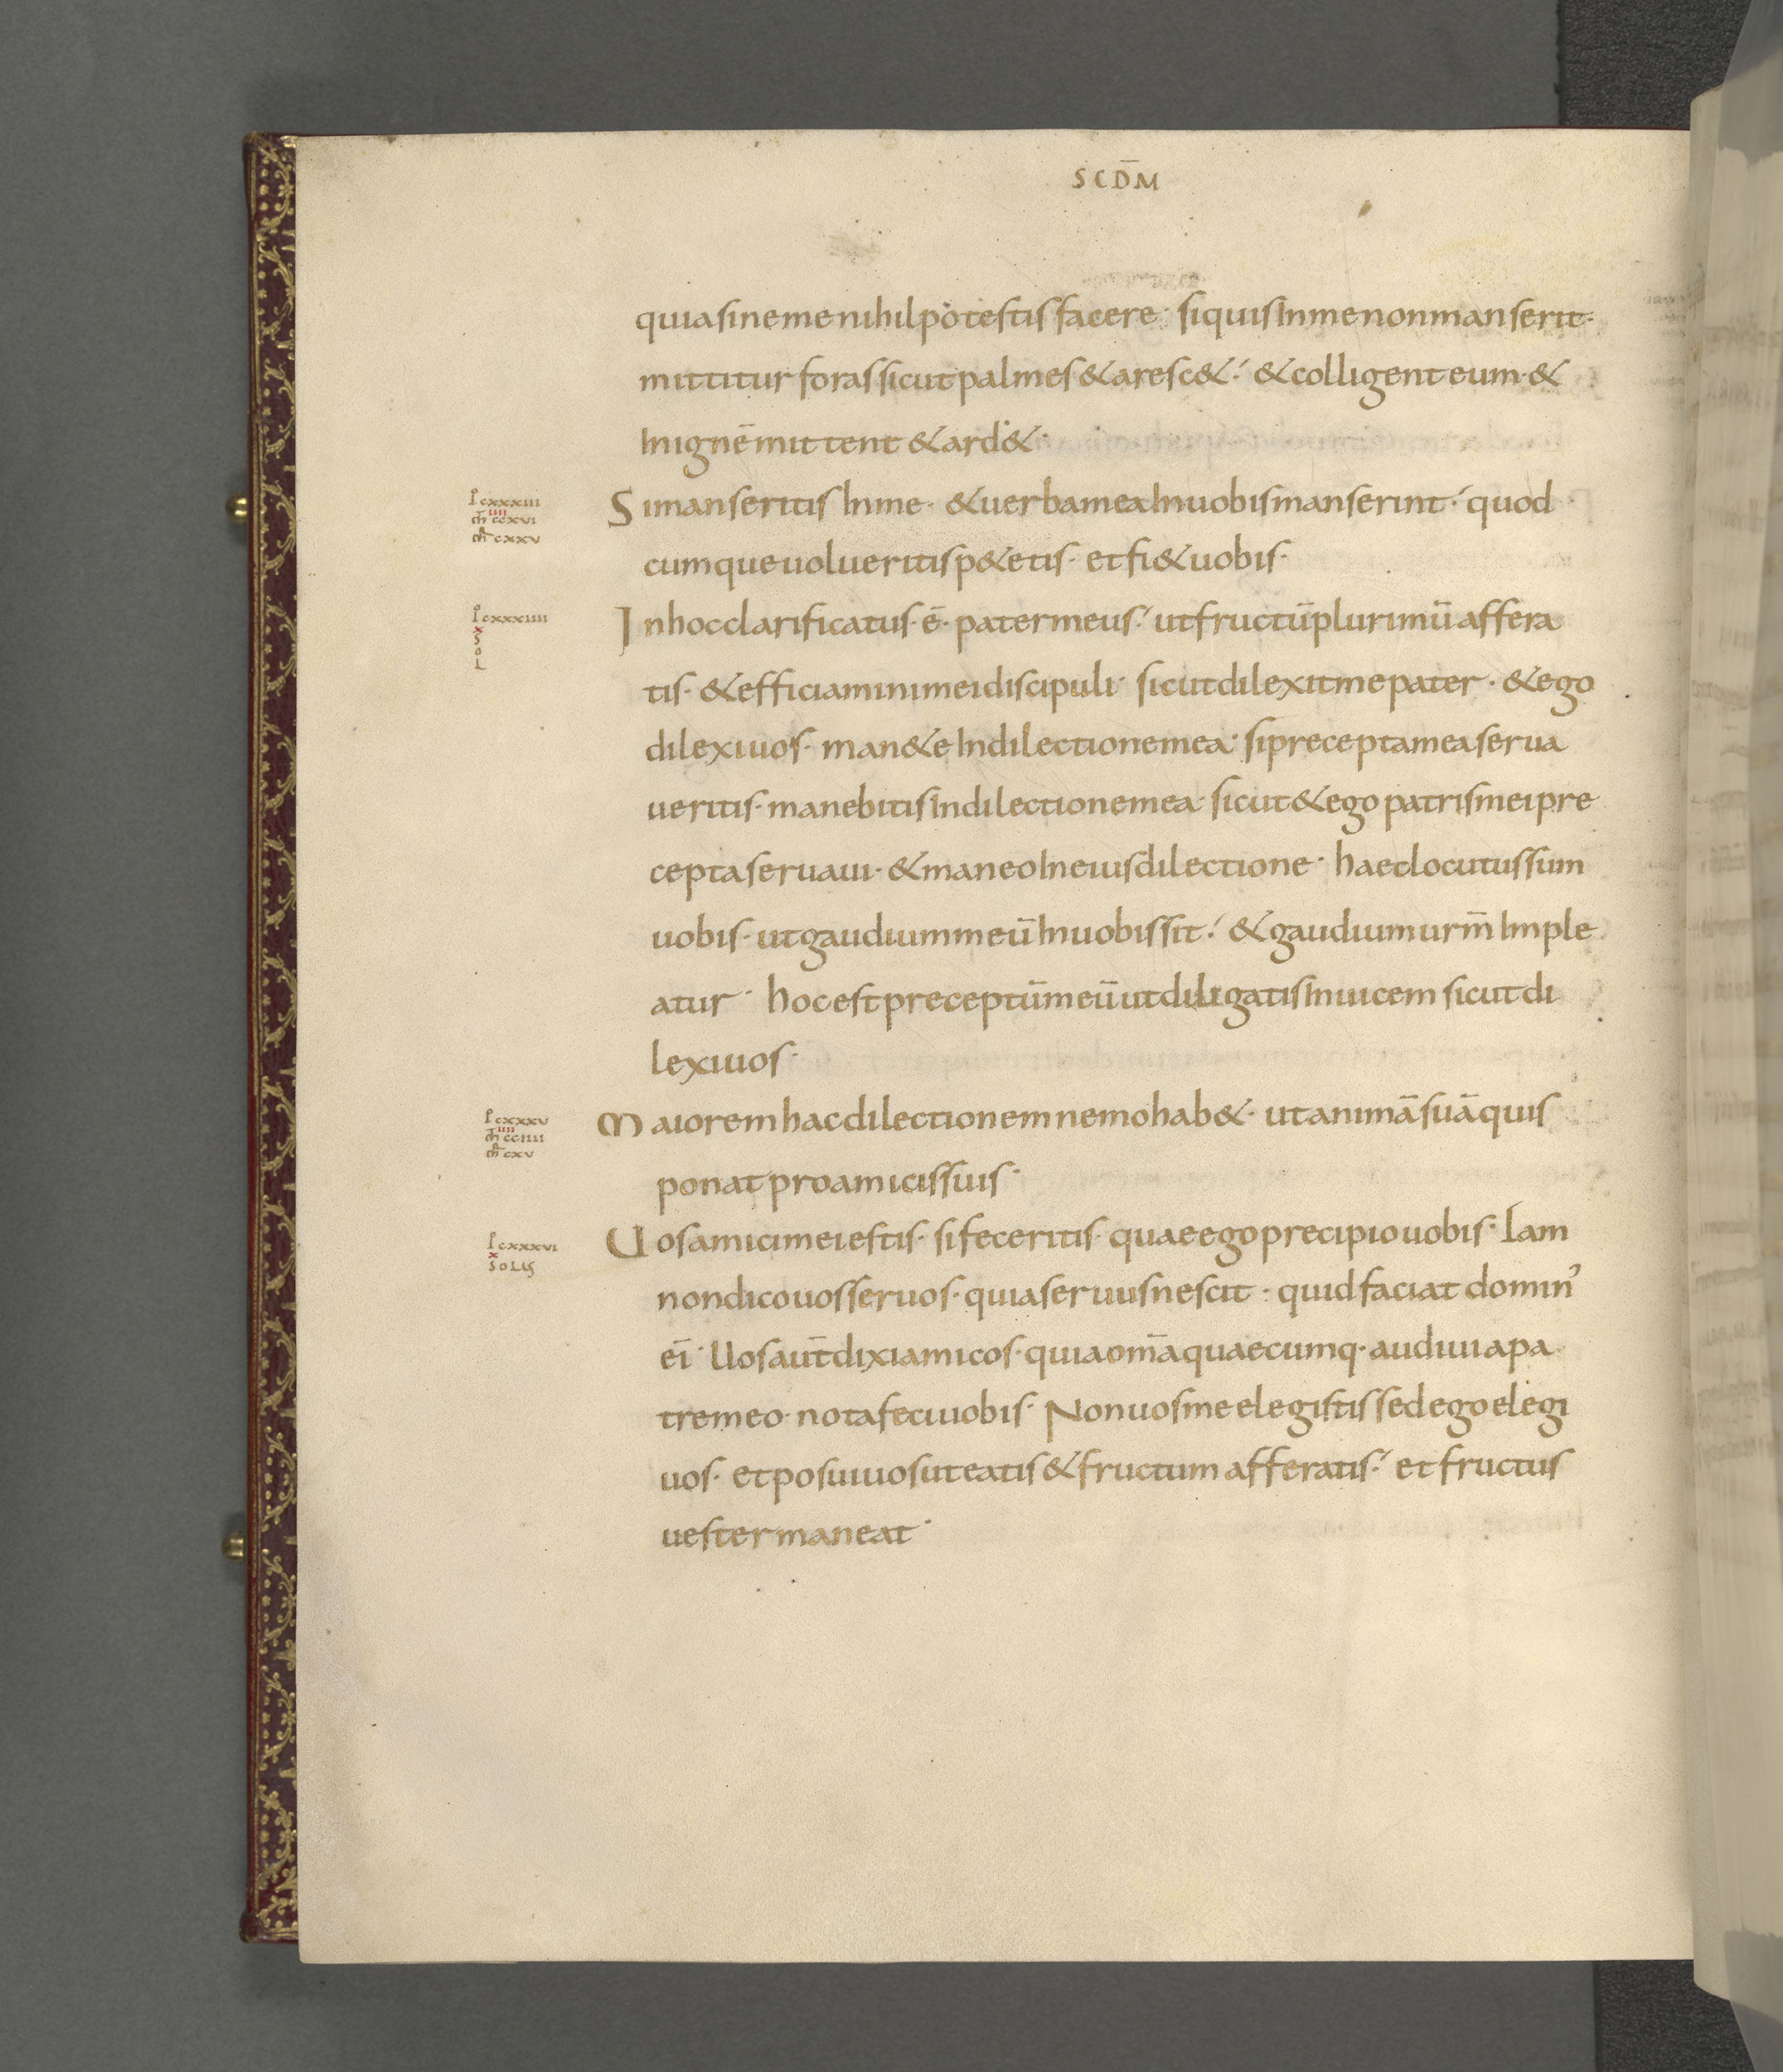 SCD̄M
quia sine me nihil potestis facere· si quis In me non manserit·
mittitur foras sicut palmes & aresc&·́ & colligent eum· &
In ignē mittent & ard&·
ł cxxxiii
IIII
m̄ ccxvi
mr̄ cxxv
Si manseritis In me· & uerba mea In uobis manserint·́ quod
cumque uolueritis p&etis· et fi& uobis·
ł cxxxiiii
x
S
O
L
In hoc clarificatus· ē· pater meus·́ ut fructū plurimū affera
tis· & efficiamini mei discipuli· sicut dilexit me pater· & ego
dilexi uos· man&e In dilectione mea· si precepta mea serua
ueritis· manebitis In dilectione mea· sicut & ego patris mei pre
cepta seruaui· & maneo In eius dilectione· haec locutus sum
uobis· ut gaudium meū In uobis sit·́ & gaudium urm̄ Imple
atur· hoc est preceptū meū ut diligatis Inuicem sicut di
lexi uos·
ł cxxxv
IIII
m̄ cciiii
mr̄ cxv
Maiorem hac dilectionem nemo hab&· ut animā suā quis
ponat pro amicis suis·
ł cxxxvi
x
SOLIS
Uos amici mei estis· si feceritis· quae ego precipio uobis· Iam
non dico uos seruos· quia seruus nescit· quid faciat domin᾽
eī· Uos aut̄ dixi amicos· quia om̄a quaecumq· audiui a pa
tre meo· nota feci uobis· Non uos me elegistis sed ego elegi
uos· et posui uos ut eatis & fructum afferatis·́ et fructus
uester maneat·